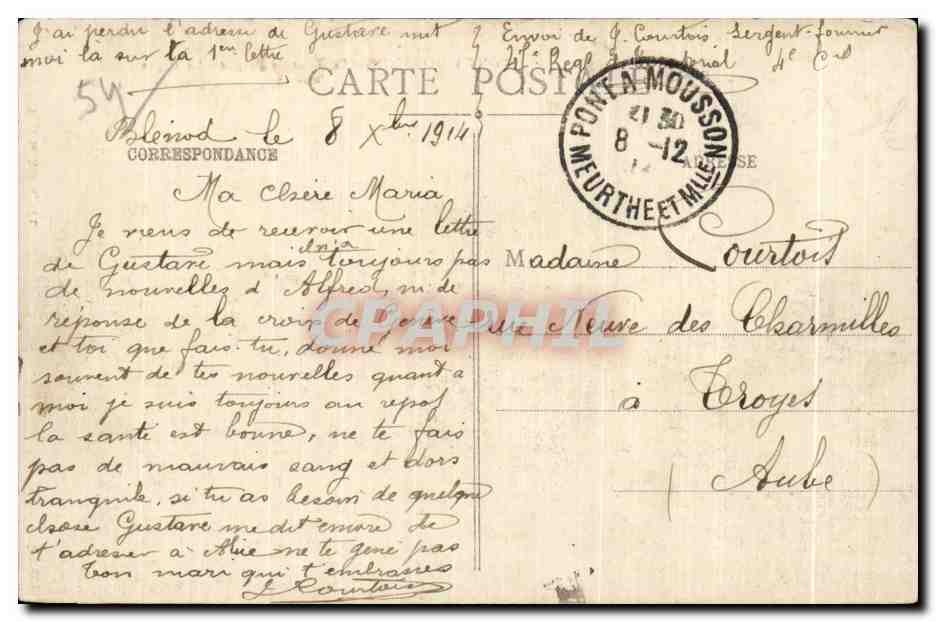 J'ai perdu l'adresse de Gustave met
moi la sur ta 1ere lettre
Envoi de J. Courtois. Sergent-fourrier
41e Regt 4e Cie
54
CARTE POSTALE
Blénod le 8 Xbre 1914
CORRESPONDANCE
ADRESSE
PONT A MOUSSON
8 -12
MEURTHE ET MLLE
Ma Chère Maria
Je viens de recevoir une lettre
de Gustave mais toujours pas
de nouvelles d'Alfred, ni de
réponse de la croix de Genève
et toi que fais-tu, donne moi
souvent de tes nouvelles quant a
moi je suis toujours au repos
la santé est bonne, ne te fais
pas de mauvais sang et dors
tranquile, si tu as besoin de quelque
chose Gustave me dit encore de
t'adresser à Alice ne te gene pas
Ton mari qui t'embrasse
Courtois
Madame Courtois
Rue Neuve des Charmilles
à Troyes
(Aube)
CPAPHIL